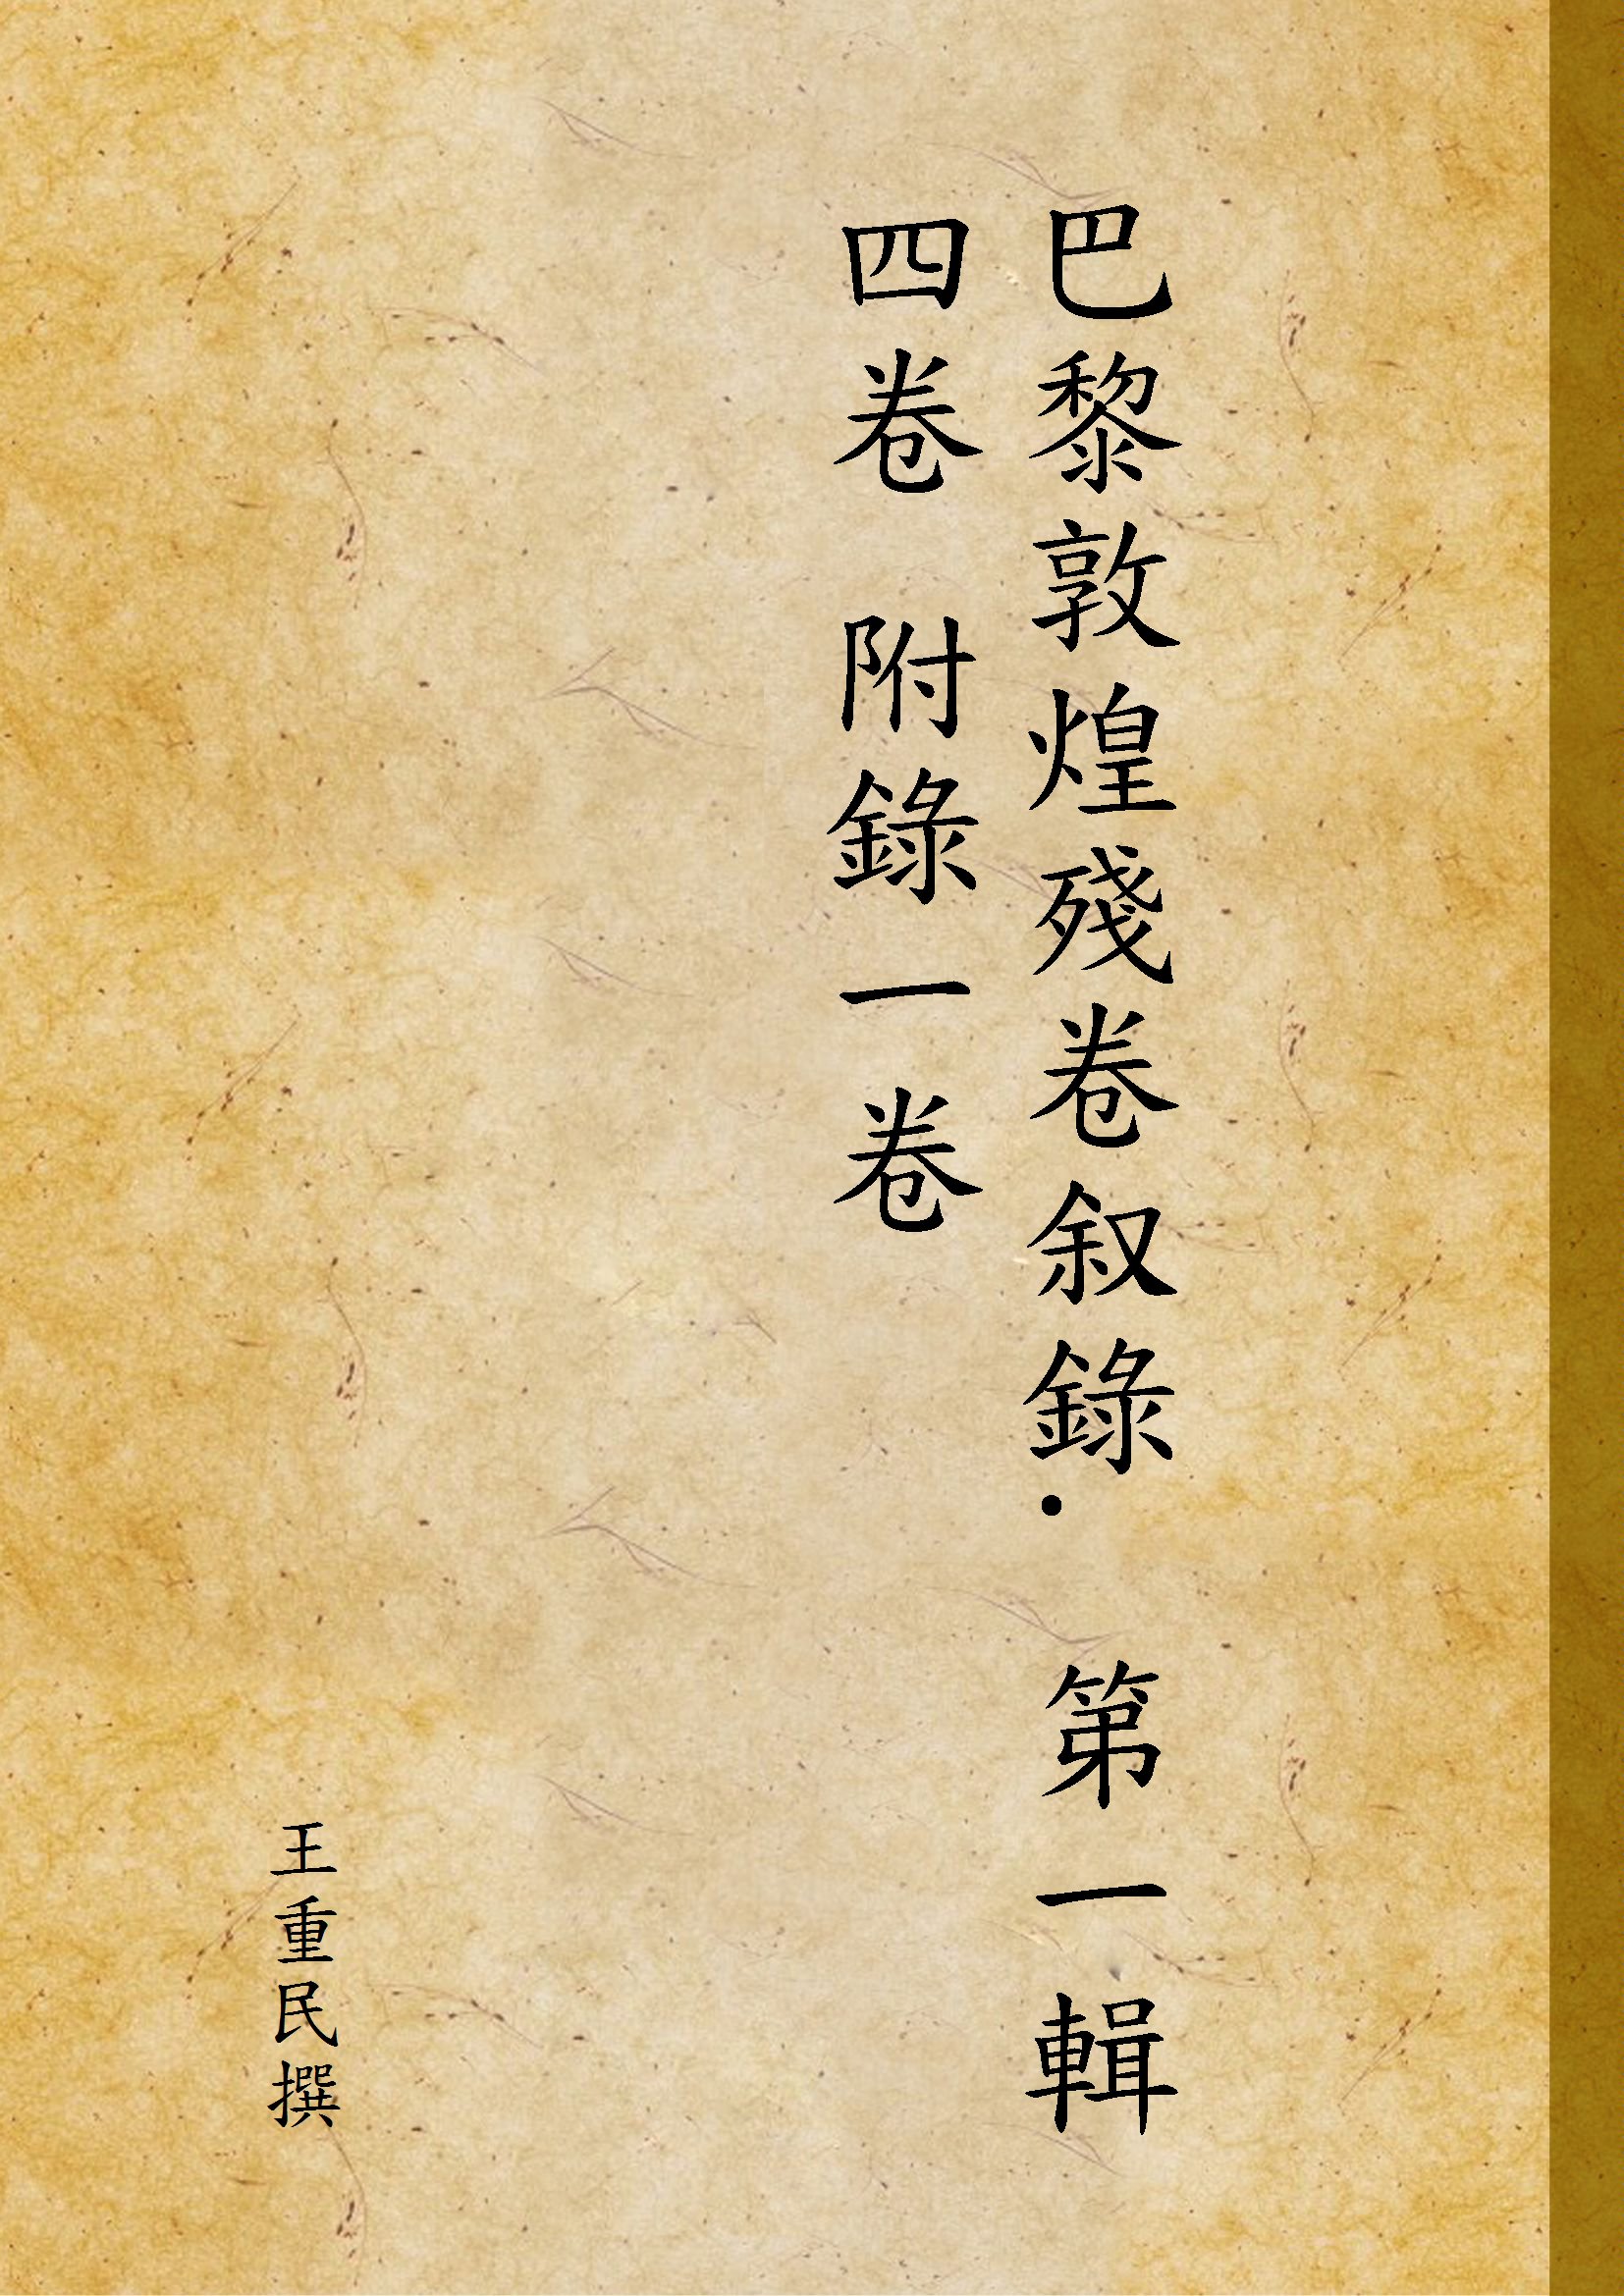 巴黎敦煌殘卷叙錄． 第一輯
四卷 附錄一卷
王重民撰